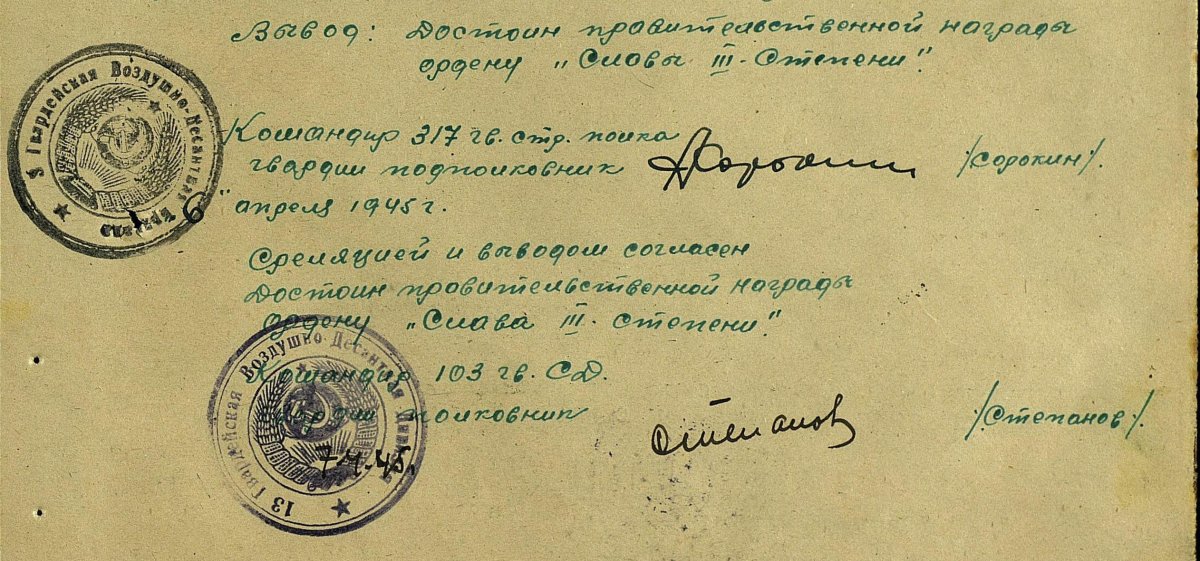 Вывод: Достоин правительственной награды
ордену „Славы III-Степени".
Командир 317 гв. стр. полка
гвардии подполковник Сорокин /Сорокин/.
"9" апреля 1945 г.
Среляцией и выводом согласен
Достоин правительственной награды
ордену „Слава III-Степени".
Командир 103 гв. СД.
гвардии полковник Степанов /Степанов/.
Гвардейская Воздушно-Десантная Бригада
13 Гвардейская Воздушно Десантная